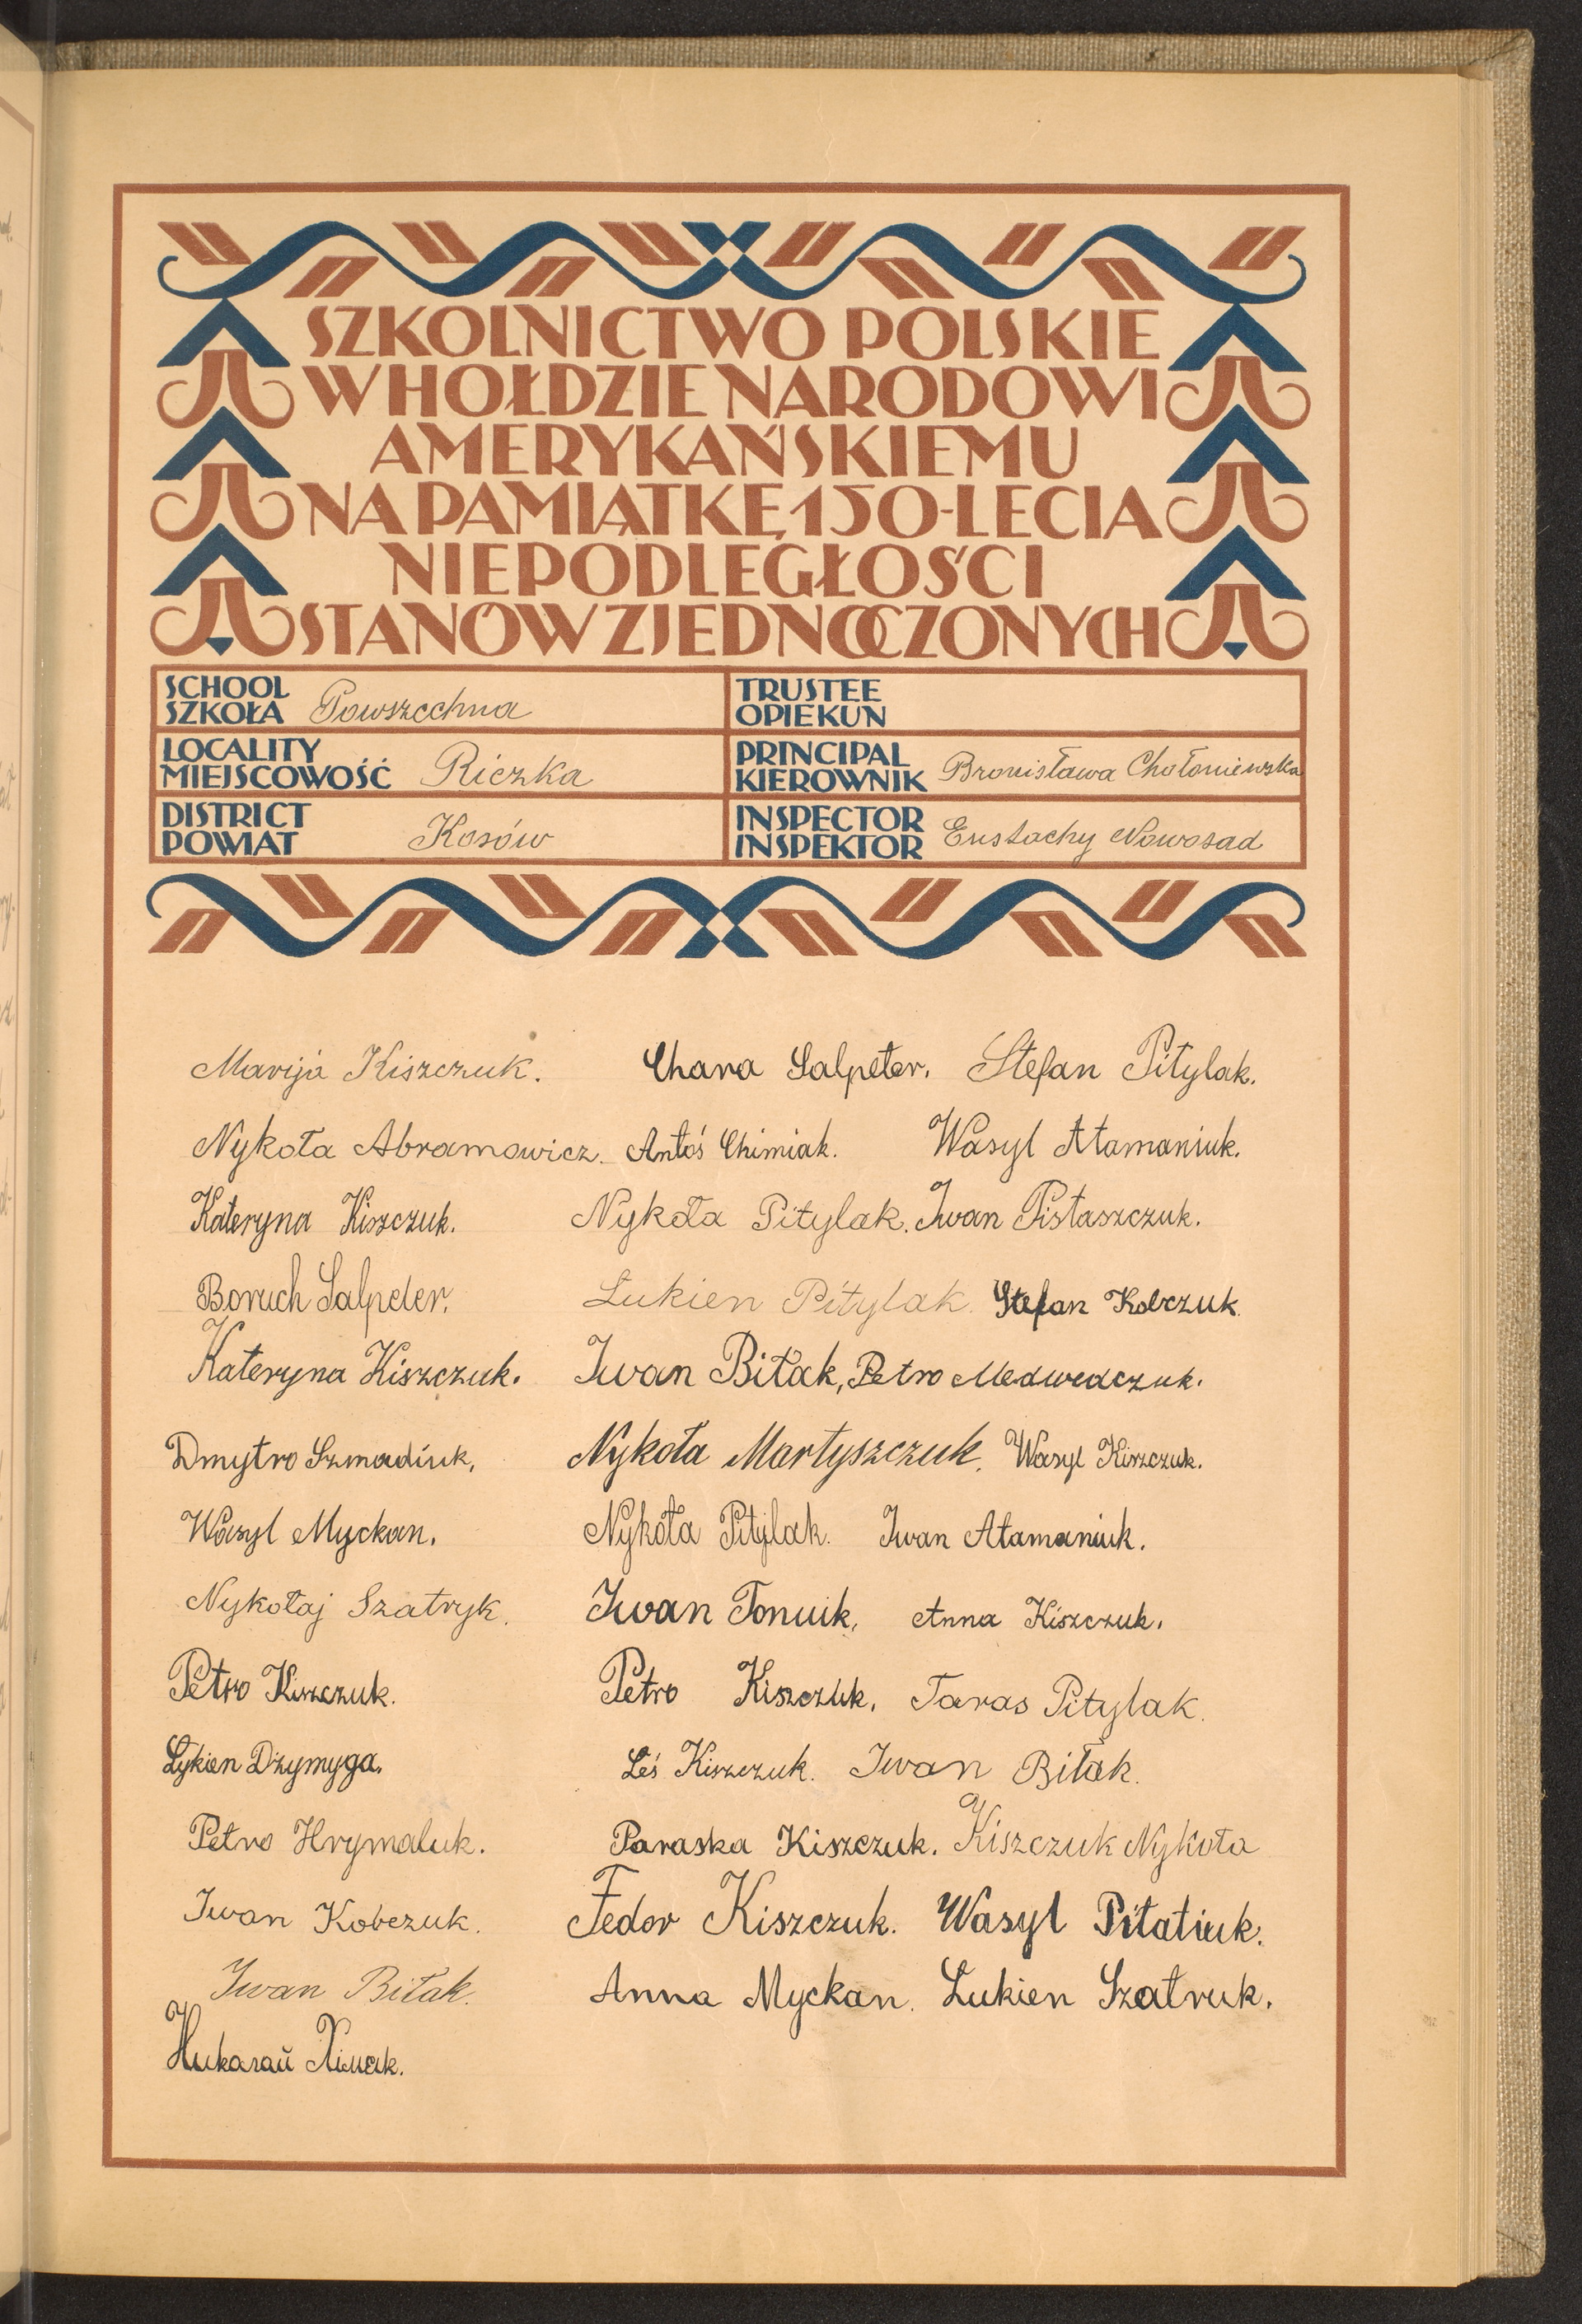 SZKOLNICTWO POLSKIE
W HOŁDZIE NARODOWI
AMERYKAŃSKIEMU
NA PAMIĄTKĘ 150-LECIA
NIEPODLEGŁOŚCI
STANÓW ZJEDNOCZONYCH
SCHOOL
SZKOŁA Powszechna
TRUSTEE
OPIEKUN
LOCALITY
MIEJSCOWOŚĆ Riczka
PRINCIPAL
KIEROWNIK Bronisława Chołoniewska
DISTRICT
POWIAT Kosów
INSPECTOR
INSPEKTOR Eustachy Nowosad
Marija Kiszczuk. Chana Salpeter. Stefan Pitylak.
Nykoła Abramowicz. Antoś Chimiak. Wasyl Atamaniuk.
Kateryna Kiszczuk. Nykoła Pitylak. Iwan Pistaszczuk.
Boruch Salpeter. Łukien Pitylak. Stefan Kobczuk.
Kateryna Kiszczuk. Iwan Biłak, Petro Medwedczuk.
Dmytro Szmadiuk, Nykoła Martyszczuk. Wasyl Kiszczuk.
Wasyl Myckan. Nykoła Pitylak. Iwan Atamaniuk.
Nykołaj Szatryk. Iwan Tonuik, Anna Kiszczuk.
Petro Kiszczuk. Petro Kiszczuk. Taras Pitylak.
Łykien Dżymyga. Leś Kiszczuk. Iwan Biłak.
Petro Hrymaluk. Paraska Kiszczuk. Kiszczuk Nykoła
Iwan Kobczuk. Fedor Kiszczuk. Wasyl Pitatiuk.
Iwan Biłak. Anna Myckan. Łukien Szatruk.
Никалай Хімєк.